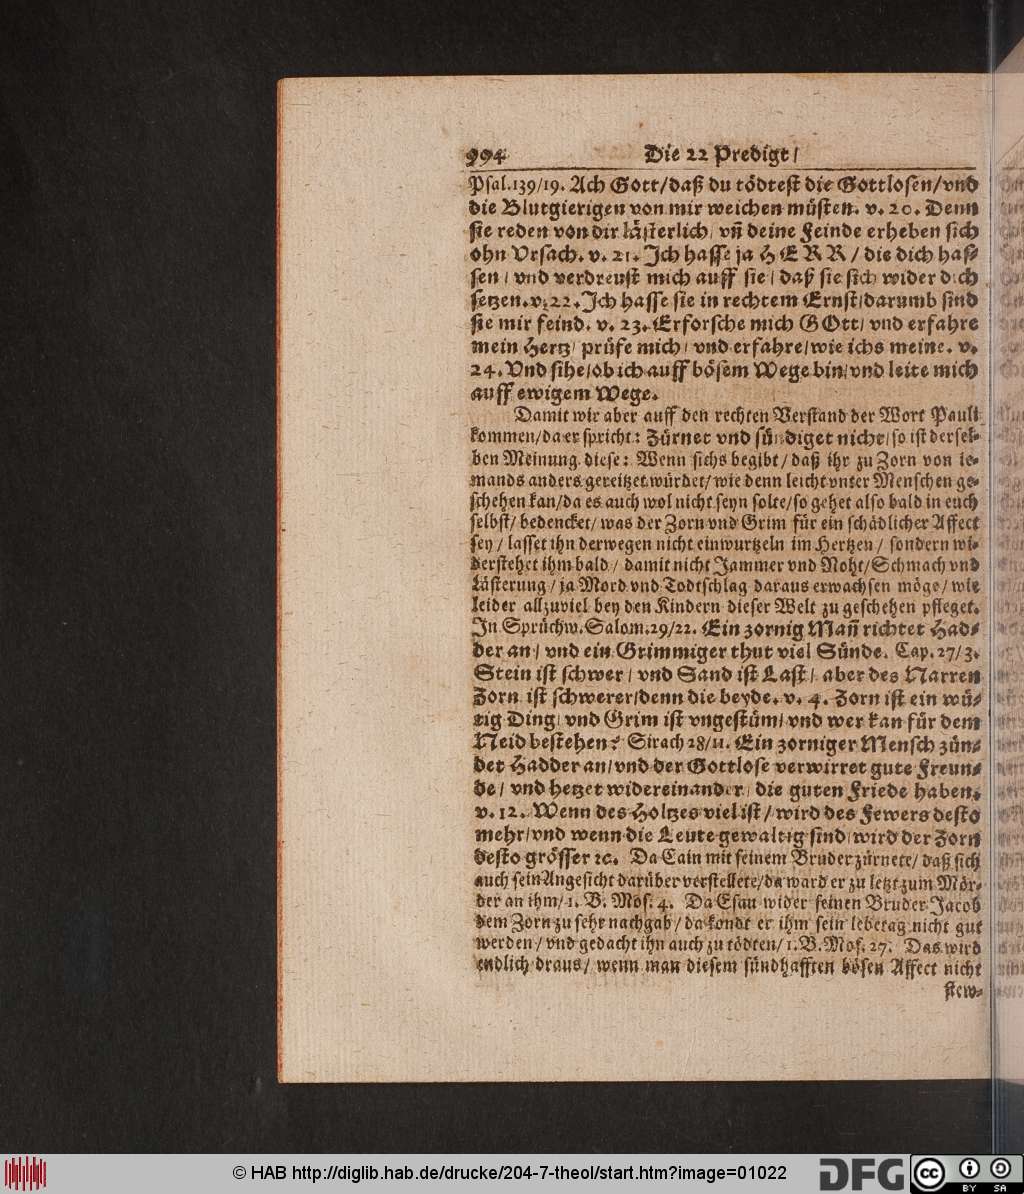 994 Die 22 Predigt/
Psal.139/19. Ach Gott/daß du tödtest die Gottlosen/vnd
die Blutgierigen von mir weichen müsten. v. 20. Denn
sie reden von dir lästerlich/ vñ deine Feinde erheben sich
ohn Vrsach. v. 21. Jch hasse ja HERR / die dich has-
sen / vnd verdreust mich auff sie / daß sie sich wider dich
setzen. v. 22. Jch hasse sie in rechtem Ernst/darumb sind
sie mir feind. v. 23. Erforsche mich GOtt/ vnd erfahre
mein Hertz/ prüfe mich/ vnd erfahre/wie ichs meine. v.
24. Vnd sihe/ob ich auff bösem Wege bin/vnd leite mich
auff ewigem Wege.
Damit wir aber auff den rechten Verstand der Wort Pauli
kommen/da er spricht: Zürnet vnd sündiget nicht/so ist dersel-
ben Meinung diese: Wenn sichs begibt/daß ihr zu Zorn von ie-
mands anders gereitzet würdet/wie denn leicht vnter Menschen ge-
schehen kan/da es auch wol nicht seyn solte/so gehet also bald in euch
selbst/ bedencket/ was der Zorn vnd Grim für ein schädlicher Affect
sey / lasset ihn derwegen nicht einwurtzeln im Hertzen / sondern wi-
derstehet ihm bald / damit nicht Jammer vnd Noht/Schmach vnd
Lästerung / ja Mord vnd Todtschlag daraus erwachsen möge/ wie
leider allzuviel bey den Kindern dieser Welt zu geschehen pfleget.
Jn Sprüchw. Salom. 29/22. Ein zornig Mañ richtet Had-
der an/ vnd ein Grimmiger thut viel Sünde. Cap. 27/3.
Stein ist schwer/ vnd Sand ist Last/ aber des Narren
Zorn ist schwerer/denn die beyde. v. 4. Zorn ist ein wü-
tig Ding/ vnd Grim ist vngestüm/ vnd wer kan für dem
Neid bestehen? Sirach 28/11. Ein zorniger Mensch zün-
det Hadder an/vnd der Gottlose verwirret gute Freun-
de/ vnd hetzet widereinander/ die guten Friede haben.
v. 12. Wenn des Holtzes viel ist/ wird des Fewers desto
mehr/vnd wenn die Leute gewaltig sind/wird der Zorn
desto grösser ꝛc. Da Cain mit seinem Bruder zürnete/ daß sich
auch sein Angesicht darüber verstellete/da ward er zu letzt zum Mör-
der an ihm/1. B. Mos. 4. Da Esau wider seinen Bruder Jacob
dem Zorn zu sehr nachgab/da kondt er ihm sein lebetag nicht gut
werden/ vnd gedacht ihn auch zu tödten/ 1. B. Mos. 27. Das wird
endlich draus/ wenn man diesem sündhafften bösen Affect nicht
stew-
© HAB http://diglib.hab.de/drucke/204-7-theol/start.htm?image=01022
DFG
cc BY SA